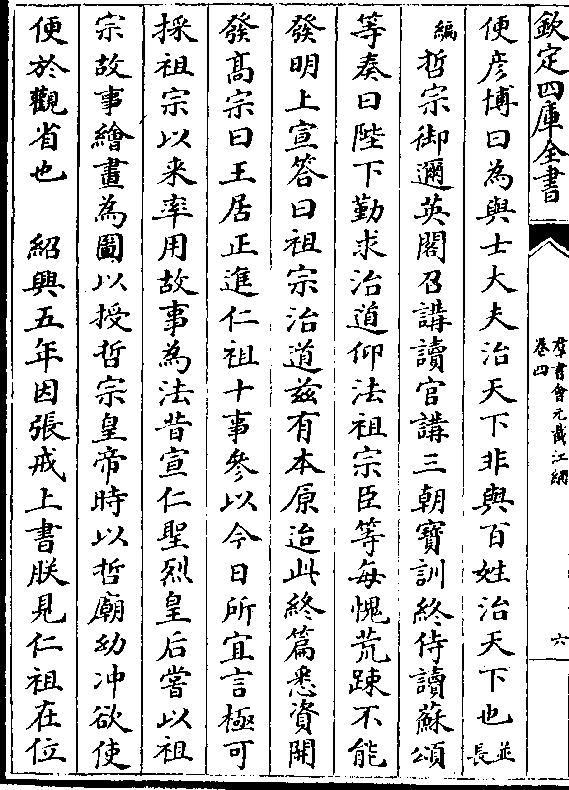 欽定四庫全書
羣書會元截江網
卷四
六
使彦博曰為與士大夫治天下非與百姓治天下也並長
編 哲宗御邇英閣召講讀官講三朝寶訓終侍讀蘇頌
等奏曰陛下勤求治道仰法祖宗臣等每愧荒踈不能
發明上宣答曰祖宗治道兹有本原迨此終篇悉資開
發髙宗曰王居正進仁祖十事參以今日所宜言極可
採祖宗以来率用故事為法昔宣仁聖烈皇后嘗以祖
宗故事繪畫為圖以授哲宗皇帝時以哲廟幼冲欲使
便於觀省也 紹興五年因張戒上書朕見仁祖在位